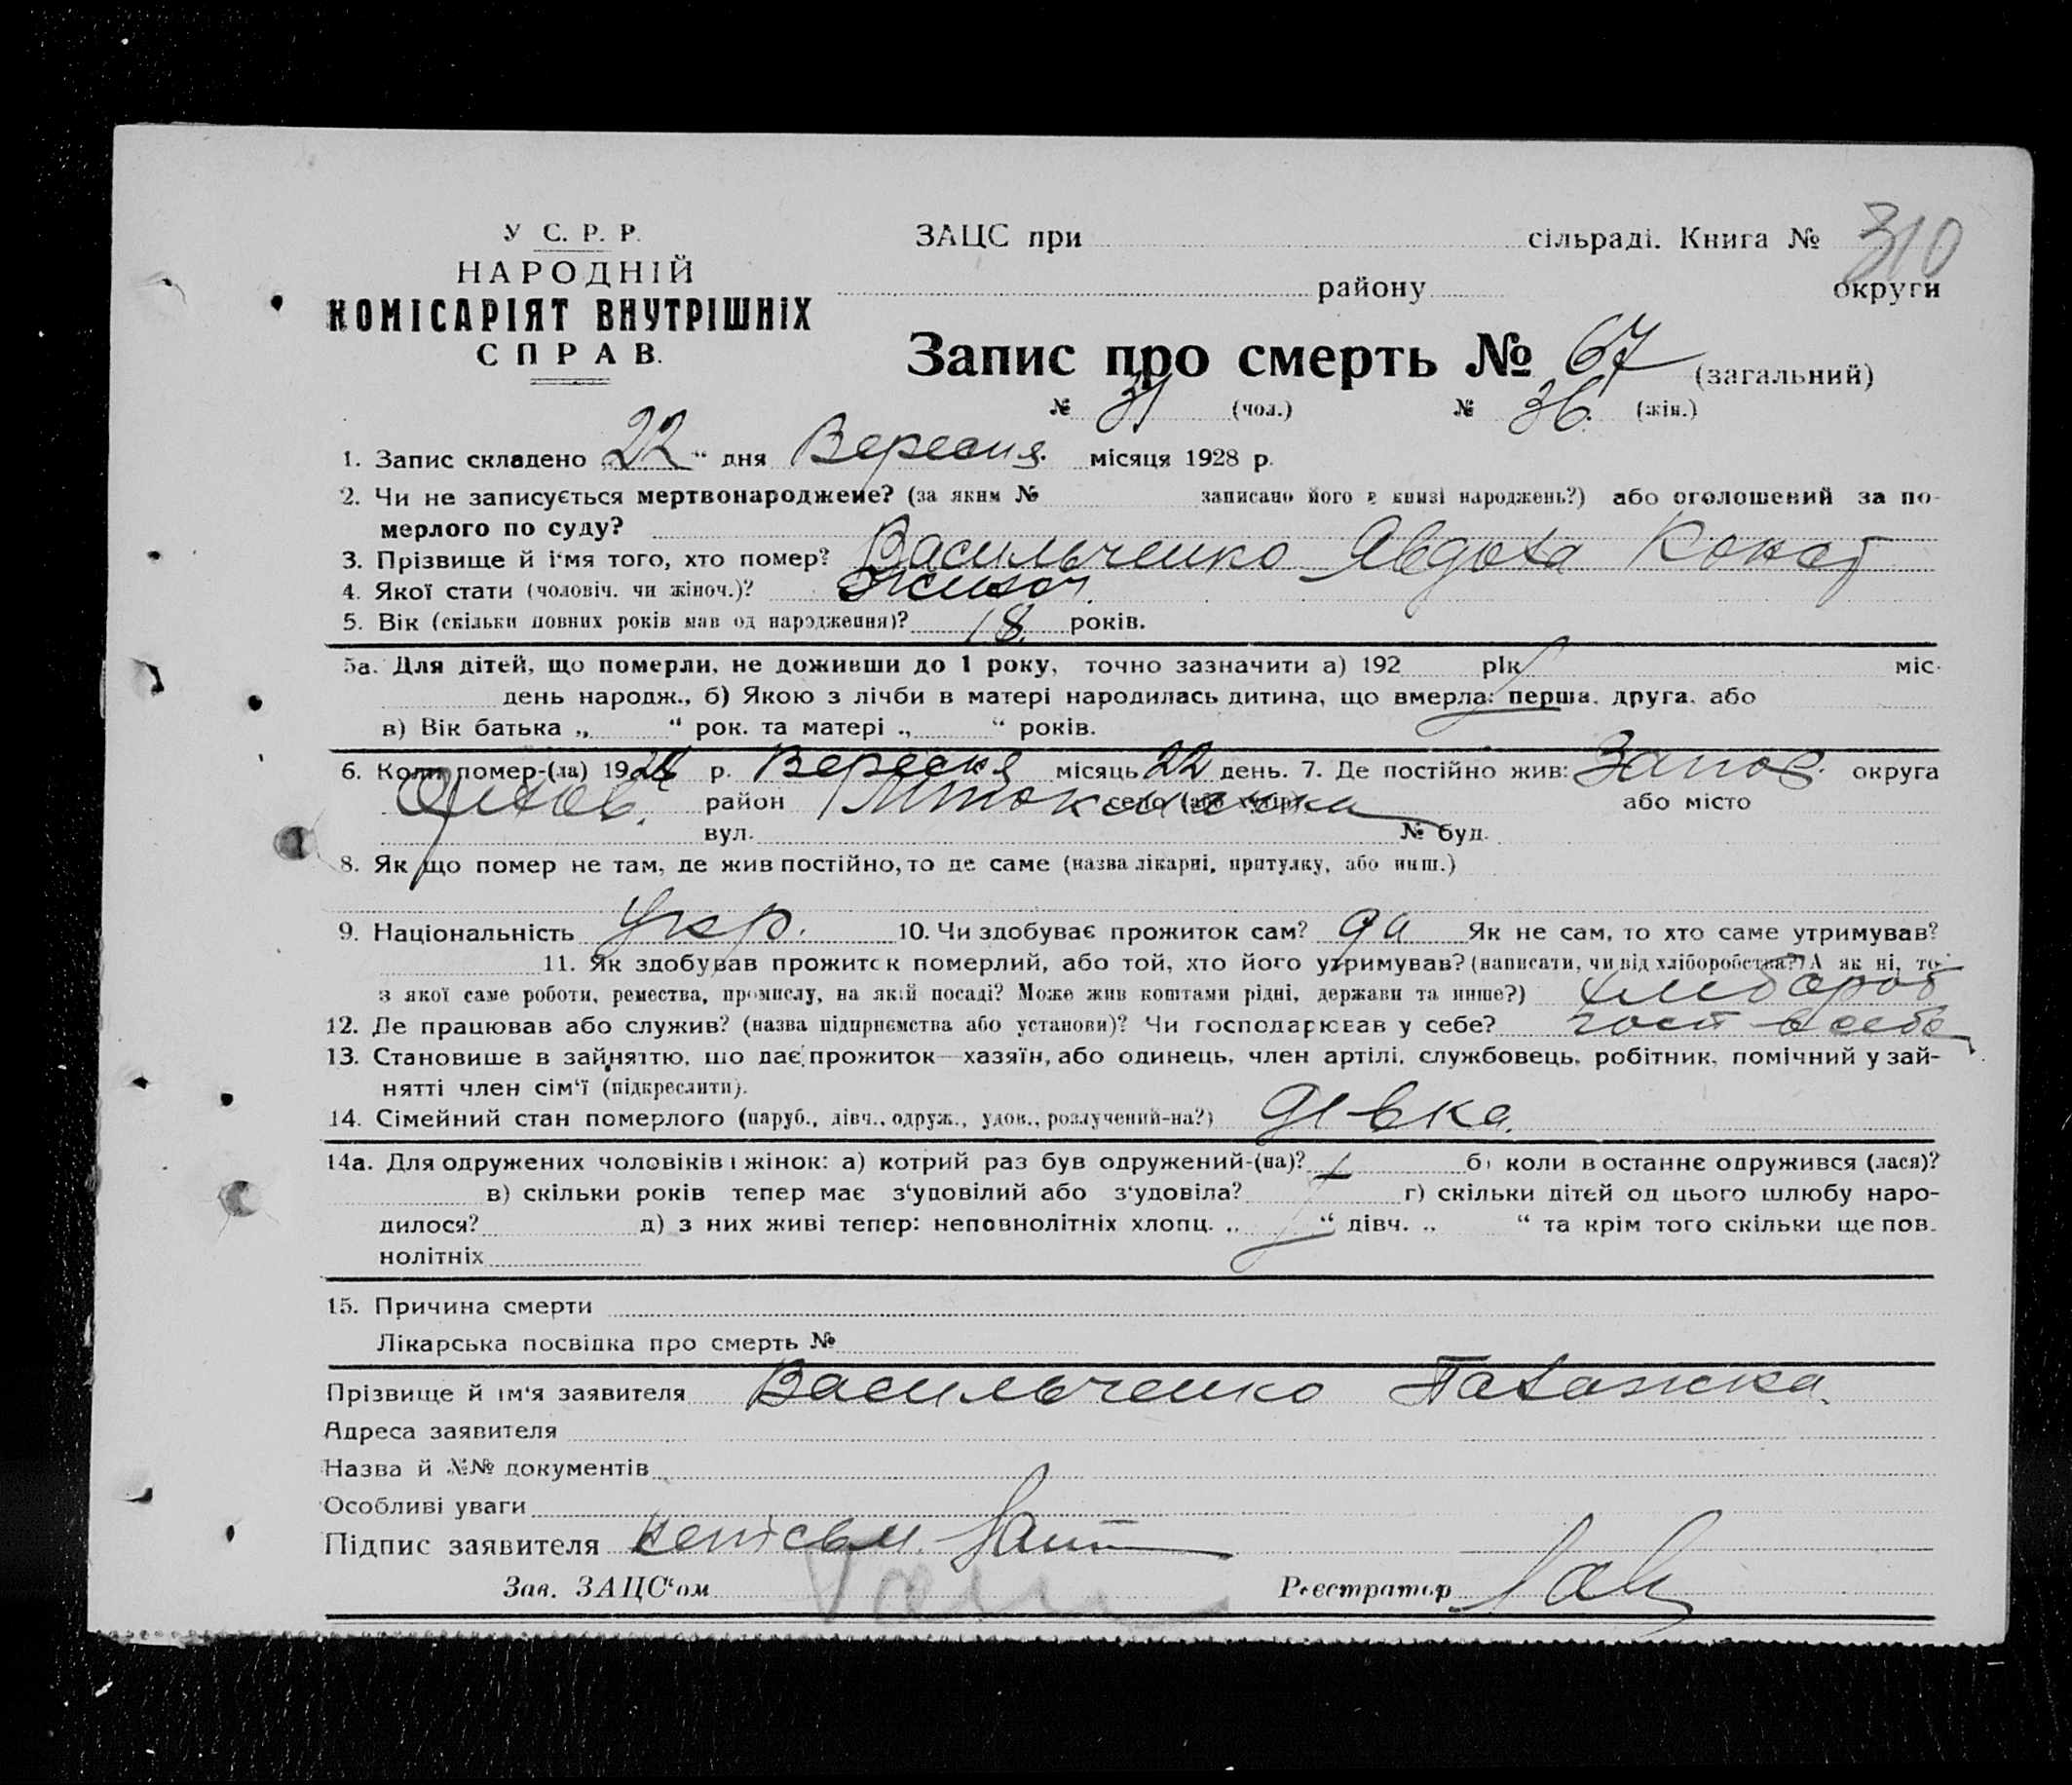 У С. Р. Р.
НАРОДНІЙ
КОМІСАРІЯТ ВНУТРІШНІХ
СПРАВ.
ЗАЦС при сільраді. Книга № 310
району округи
Запис про смерть № 67 (загальний)
№ 31 (чол.) № 36. (жін.)
1. Запис складено „22“ дня Вересня місяця 1928 р.
2. Чи не записується мертвонароджене? (за яким № записано його в книзі народжень?) або оголошений за по-
мерлого по суду?
3. Прізвище й і'мя того, хто помер? Васильченко Явдоха Конст
4. Якої стати (чоловіч. чи жіноч.)? жиноч.
5. Вік (скільки повних років мав од народження)? 18 років.
5а. Для дітей, що померли, не доживши до 1 року, точно зазначити а) 192 рік міс.
день народж., б) Якою з лічби в матері народилась дитина, що вмерла: перша, друга, або
в) Вік батька „ “ рок. та матері „ “ років.
6. Коли помер-(ла) 1928 р. Вересня місяць 22 день. 7. Де постійно жив: Запор. округа
район село (або хутір) або місто
вул. № буд.
8. Як що помер не там, де жив постійно, то де саме (назва лікарні, притулку, або инш.)
9. Національність Укр. 10. Чи здобуває прожиток сам? да Як не сам, то хто саме утримував?
11. Як здобував прожиток померлий, або той, хто його утримував? (написати, чи від хліборобства? А як ні, то
з якої саме роботи, ремества, промислу, на якій посаді? Може жив коштами рідні, держави та инше?) хлибороб
12. Де працював або служив? (назва підприємства або установи)? Чи господарював у себе? госп в себе
13. Становише в зайняттю, що дає прожиток—хазяїн, або одинець, член артілі, службовець, робітник, помічний у зай-
нятті член сім'ї (підкреслити).
14. Сімейний стан померлого (паруб., дівч., одруж., удов., розлучений-на?) дівка.
14а. Для одружених чоловіків і жінок: а) котрий раз був одружений-(на)? б) коли в останнє одружився (лася)?
в) скільки років тепер має з'удовілий або з'удовіла? г) скільки дітей од цього шлюбу наро-
дилося? д) з них живі тепер: неповнолітніх хлопц. „ “ дівч. „ “ та крім того скільки ще пов-
нолітніх
15. Причина смерти
Лікарська посвідка про смерть №
Прізвище й ім'я заявителя Васильченко Палажка.
Адреса заявителя
Назва й №№ документів
Особливі уваги
Підпис заявителя неписьм.
Зав. ЗАЦС'ом Реєстратор